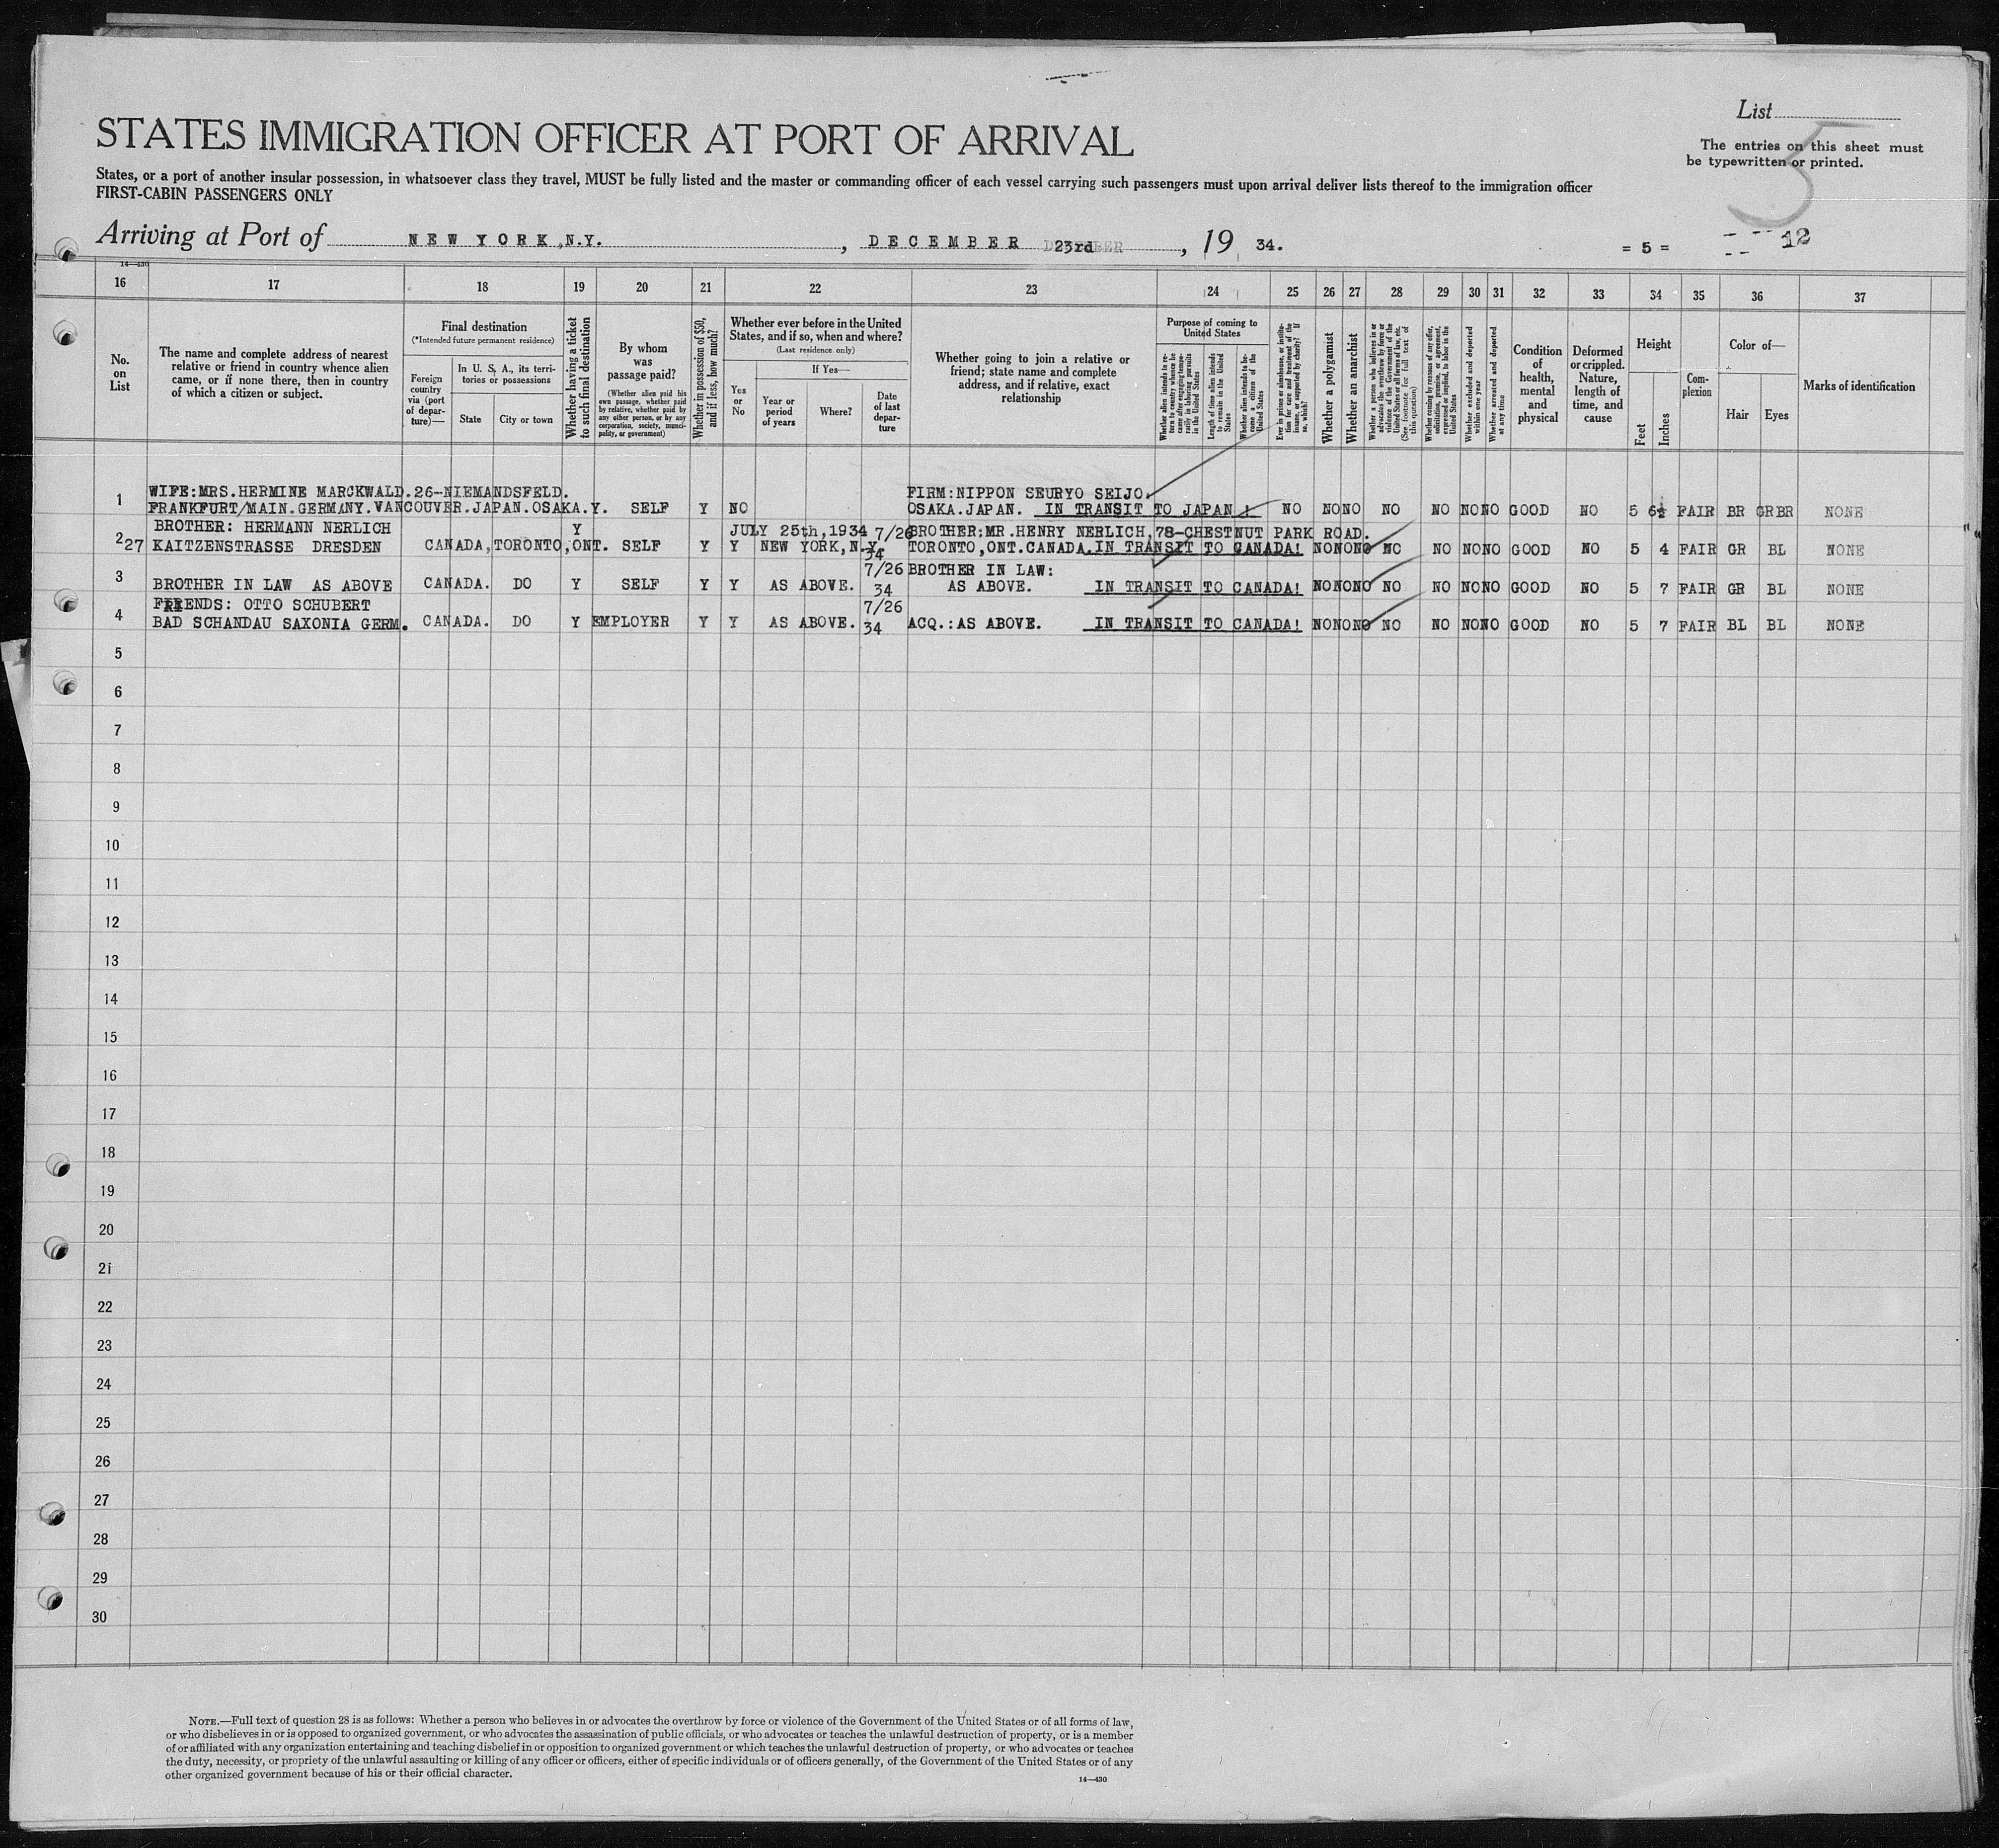 List
STATES IMMIGRATION OFFICER AT PORT OF ARRIVAL
The entries on this sheet must
be typewritten or printed.
5
States, or a port of another insular possession, in whatsoever class they travel, MUST be fully listed and the master or commanding officer of each vessel carrying such passengers must upon arrival deliver lists thereof to the immigration officer
FIRST-CABIN PASSENGERS ONLY
Arriving at Port of NEW YORK, N.Y. , DECEMBER 23rd , 19 34. = 5 = 12
14—430
16 17 18 19 20 21 22 23 24 25 26 27 28 29 30 31 32 33 34 35 36 37
No.
on
List
The name and complete address of nearest
relative or friend in country whence alien
came, or if none there, then in country
of which a citizen or subject.
Final destination
(*Intended future permanent residence)
Foreign
country
via (port
of depar-
ture)—
In U. S. A., its terri-
tories or possessions
State
City or town
Whether having a ticket
to such final destination
By whom
was
passage paid?
(Whether alien paid his
own passage, whether paid
by relative, whether paid by
any other person, or by any
corporation, society, munci-
pality, or government)
Whether in possession of $50,
and if less, how much?
Whether ever before in the United
States, and if so, when and where?
(Last residence only)
Yes
or
No
If Yes—
Year or
period
of years
Where?
Date
of last
depar-
ture
Whether going to join a relative or
friend; state name and complete
address, and if relative, exact
relationship
Purpose of coming to
United States
Whether alien intends to re-
turn to country whence he
came after engaging tempo-
rarily in laboring pursuits
in the United States
Length of time alien intends
to remain in the United
States
Whether alien intends to be-
come a citizen of the
United States
Ever in prison or almshouse, or institu-
tion for care and treatment of the
insane, or supported by charity? If
so, which?
Whether a polygamist
Whether an anarchist
Whether a person who believes in or
advocates the overthrow by force or
violence of the Government of the
United States or all forms of law, etc.
(See footnote for full text of
this question)
Whether coming by reason of any offer,
solicitation, promise, or agreement,
expressed or implied, to labor in the
United States
Whether excluded and deported
within one year
Whether arrested and deported
at any time
Condition
of
health,
mental
and
physical
Deformed
or crippled.
Nature,
length of
time, and
cause
Height
Feet
Inches
Com-
plexion
Color of—
Hair
Eyes
Marks of identification
WIFE:MRS.HERMINE MARCKWALD.26-NIEMANDSFELD. FIRM:NIPPON SEURYO SEIJO.
1 FRANKFURT/MAIN.GERMANY.VANCOUVER.JAPAN.OSAKA.Y. SELF Y NO OSAKA.JAPAN. IN TRANSIT TO JAPAN NO NO NO NO NO NO NO GOOD NO 5 6½ FAIR BR GRBR NONE
BROTHER: HERMANN NERLICH Y JULY 25th,1934 7/26 BROTHER:MR.HENRY NERLICH,78-CHESTNUT PARK ROAD.
2 27 KAITZENSTRASSE DRESDEN CANADA,TORONTO,ONT. SELF Y Y NEW YORK,N.Y. 34 TORONTO,ONT.CANADA.IN TRANSIT TO CANADA! NO NO NO NO NO NO NO GOOD NO 5 4 FAIR GR BL NONE
7/26 BROTHER IN LAW:
3 BROTHER IN LAW AS ABOVE CANADA. DO Y SELF Y Y AS ABOVE. 34 AS ABOVE. IN TRANSIT TO CANADA! NO NO NO NO NO NO NO GOOD NO 5 7 FAIR GR BL NONE
FRIENDS: OTTO SCHUBERT 7/26
4 BAD SCHANDAU SAXONIA GERM. CANADA. DO Y EMPLOYER Y Y AS ABOVE. 34 ACQ.:AS ABOVE. IN TRANSIT TO CANADA! NO NO NO NO NO NO NO GOOD NO 5 7 FAIR BL BL NONE
5
6
7
8
9
10
11
12
13
14
15
16
17
18
19
20
21
22
23
24
25
26
27
28
29
30
NOTE.—Full text of question 28 is as follows: Whether a person who believes in or advocates the overthrow by force or violence of the Government of the United States or of all forms of law,
or who disbelieves in or is opposed to organized government, or who advocates the assassination of public officials, or who advocates or teaches the unlawful destruction of property, or is a member
of or affiliated with any organization entertaining and teaching disbelief in or opposition to organized government or which teaches the unlawful destruction of property, or who advocates or teaches
the duty, necessity, or propriety of the unlawful assaulting or killing of any officer or officers, either of specific individuals or of officers generally, of the Government of the United States or of any
other organized government because of his or their official character.
14—430